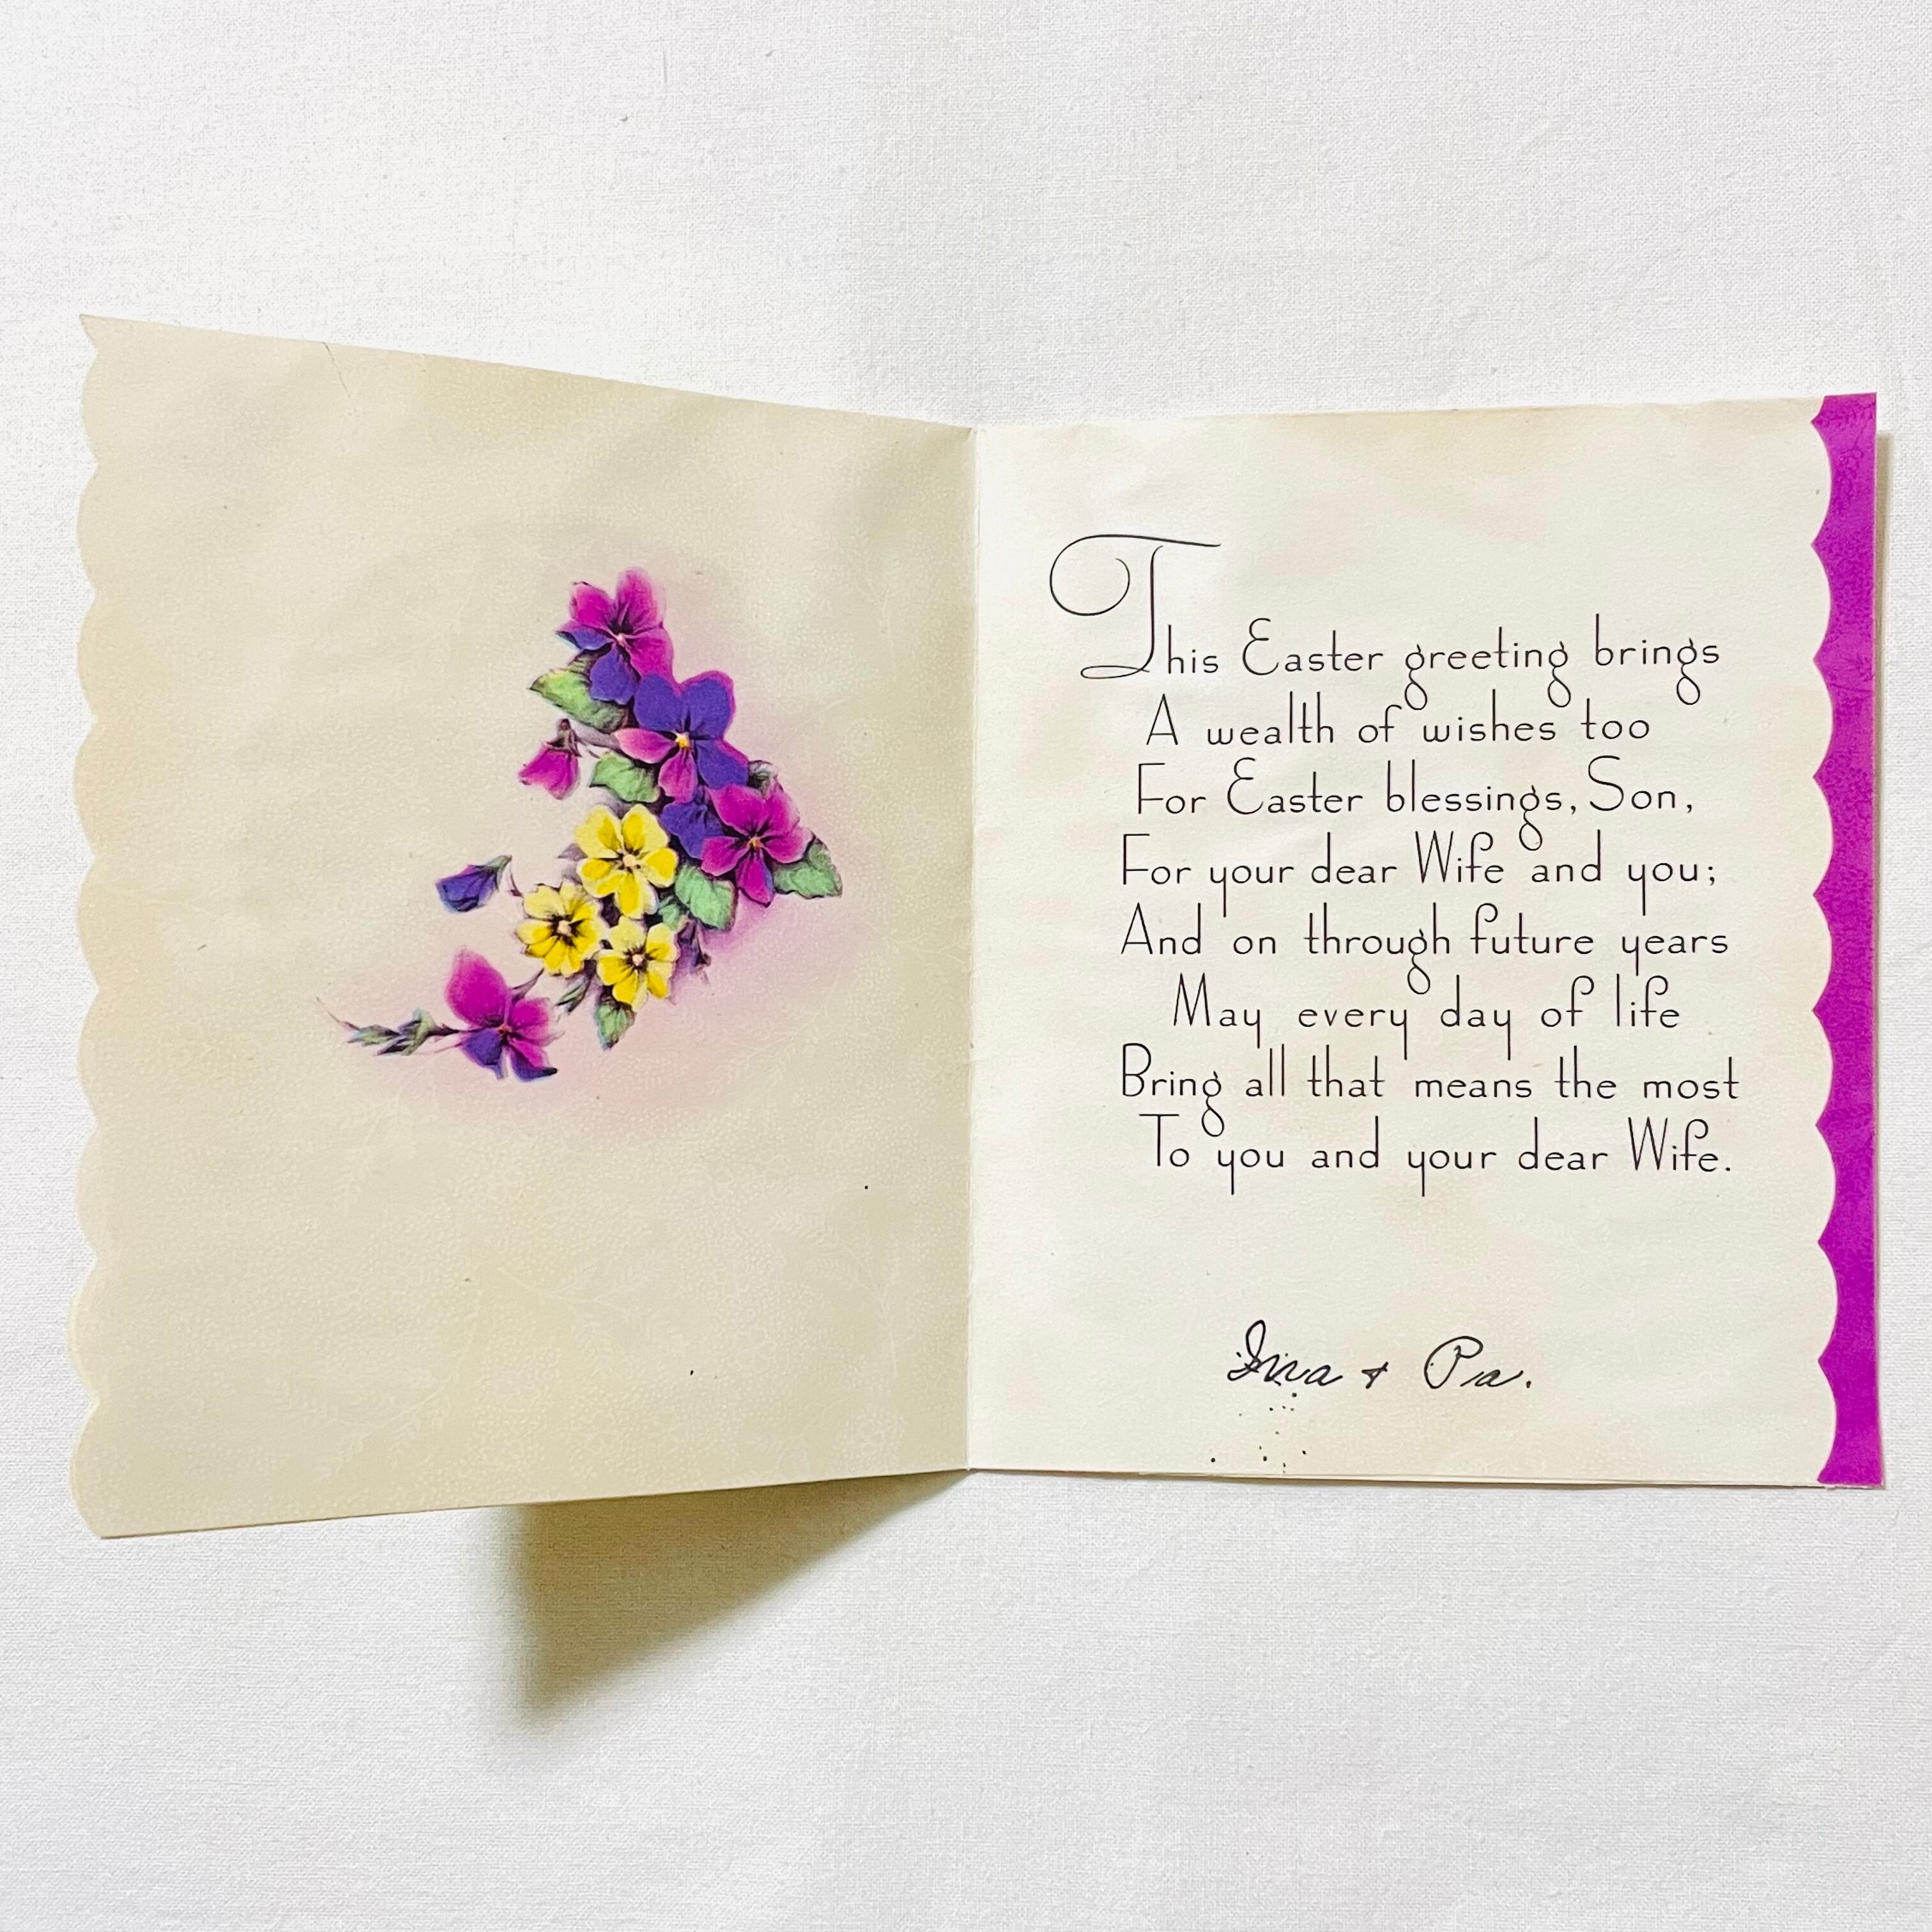 This Easter greeting brings
A wealth of wishes too
For Easter blessings, Son,
For your dear Wife and you;
And on through future years
May every day of life
Bring all that means the most
To you and your dear Wife.
Ina + Pa.